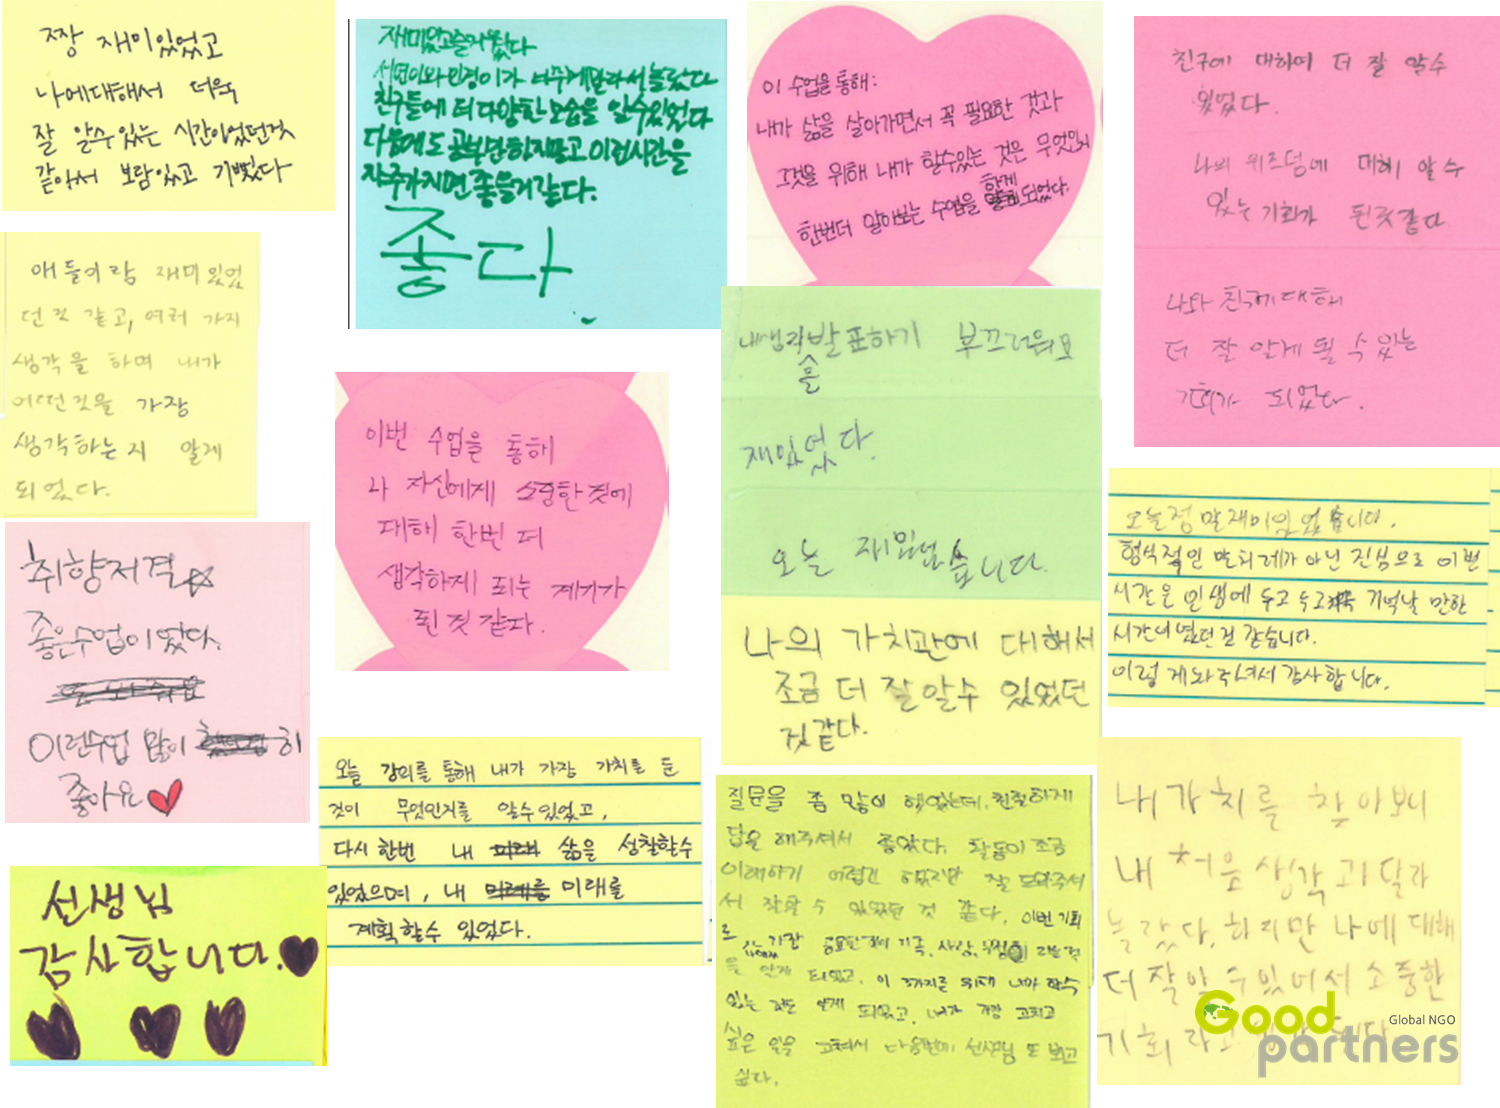 짱 재미있었고
나에대해서 더욱
잘 알수있는 시간이었던것
같아서 보람있고 기뻤다
재미있고즐거웠다
서연이와민경이가 너무게달라서놀랐다
친구들에 더 다양한 모습을 알수있었다
다음에도 공부만하지말고 이런시간을
자주가지면 좋을거같다.
좋다
이 수업을 통해:
내가 삶을 살아가면서 꼭 필요한 것과
그것을 위해 내가 할수있는 것은 무엇인지
한번더 알아보는 수업을 함께 되었다.
친구에 대하여 더 잘 알수
있었다.
나의 위즈덤에 대해 알 수
있는 기회가 된것같다.
나와 친구에대해
더 잘 알게 될 수 있는
기회가 되었다.
애들이랑 재미있었
던것 같고, 여러 가지
생각을 하며 내가
어떤것을 가장
생각하는지 알게
되었다.
내생각을 발표하기 부끄러워요
재밌었다.
오늘 재밌었습니다.
나의 가치관에 대해서
조금 더 잘알수 있었던
것같다.
이번 수업을 통해
나 자신에게 소중한것에
대해 한번 더
생각하게 되는 계기가
된것 같다.
오늘정말재미있었습니다.
형식적인 말치레가아닌 진심으로 이번
시간은 인생에 두고두고 기억날 만한
시간이었던것 같습니다.
이렇게와주셔서 감사합니다.
취향저격☆
좋은수업이었다.
이런수업 많이 히
좋아요♥
오늘 강의를 통해 내가 가장 가치를 둔
것이 무엇인지를 알수있었고,
다시한번 내 삶을 성찰할수
있었으며, 내 미래를
계획할수 있었다.
선생님
감사합니다.♥
질문을 좀 많이 했었는데, 친절하게
답을 해주셔서 좋았다. 활동이 조금
이해하기 어렵긴 했지만 잘 도와주셔
서 잘할 수 있었던 것 같다. 이번 기회
로 가장 중요한것이 가족, 사랑, 우정이라는것
을 알게 되었고, 이 3가지를 위해 내가 할수
있는 것도 알게 되었고, 내가 가장 고치고
싶은 일을 고쳐서 다음번에 선생님 또 보고
싶다.
내가치를 찾아보니
내 처음생각과달라
놀랐다. 하지만 나에대해
더 잘알 수있어서 소중한
기회라고
Good
partners
Global NGO